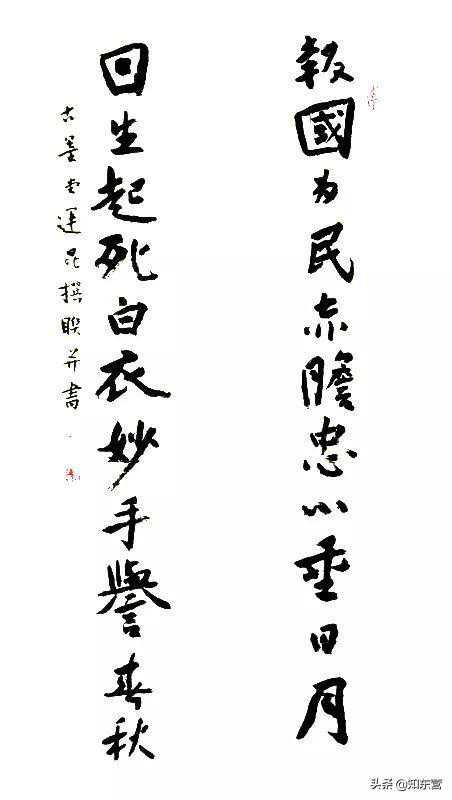 報國为民赤膽忠心垂日月
回生起死白衣妙手譽春秋
古墨堂運昆撰联并書
头条 @知东营